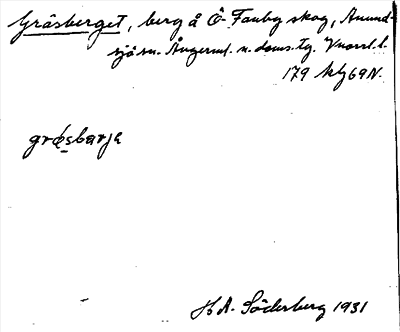 Gråsberget, berg å Ö. Fanby skog, Åmund-
sjö sn. Ångerml. n. doms. tg. Vnorrl. l.
179 Mg 69 N.
gråsbarja
H. A. Söderberg 1931